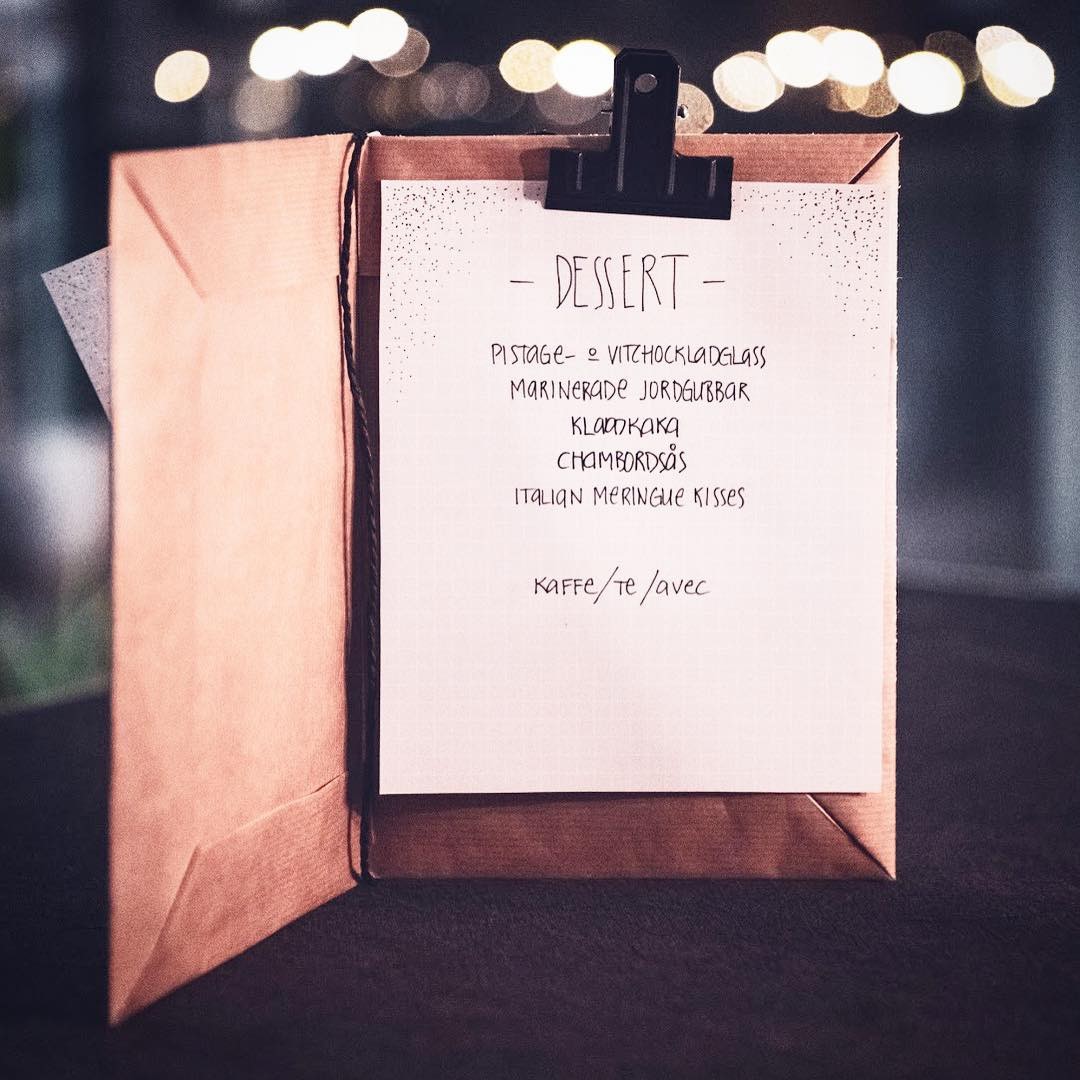 - DESSERT -
PISTAGE- o VITCHOCKLADGLASS
MARINERADE JORDGUBBAR
KLADDKAKA
CHAMBORDSÅS
ITALIAN MERINGUE KISSES
KAFFE/TE/AVEC